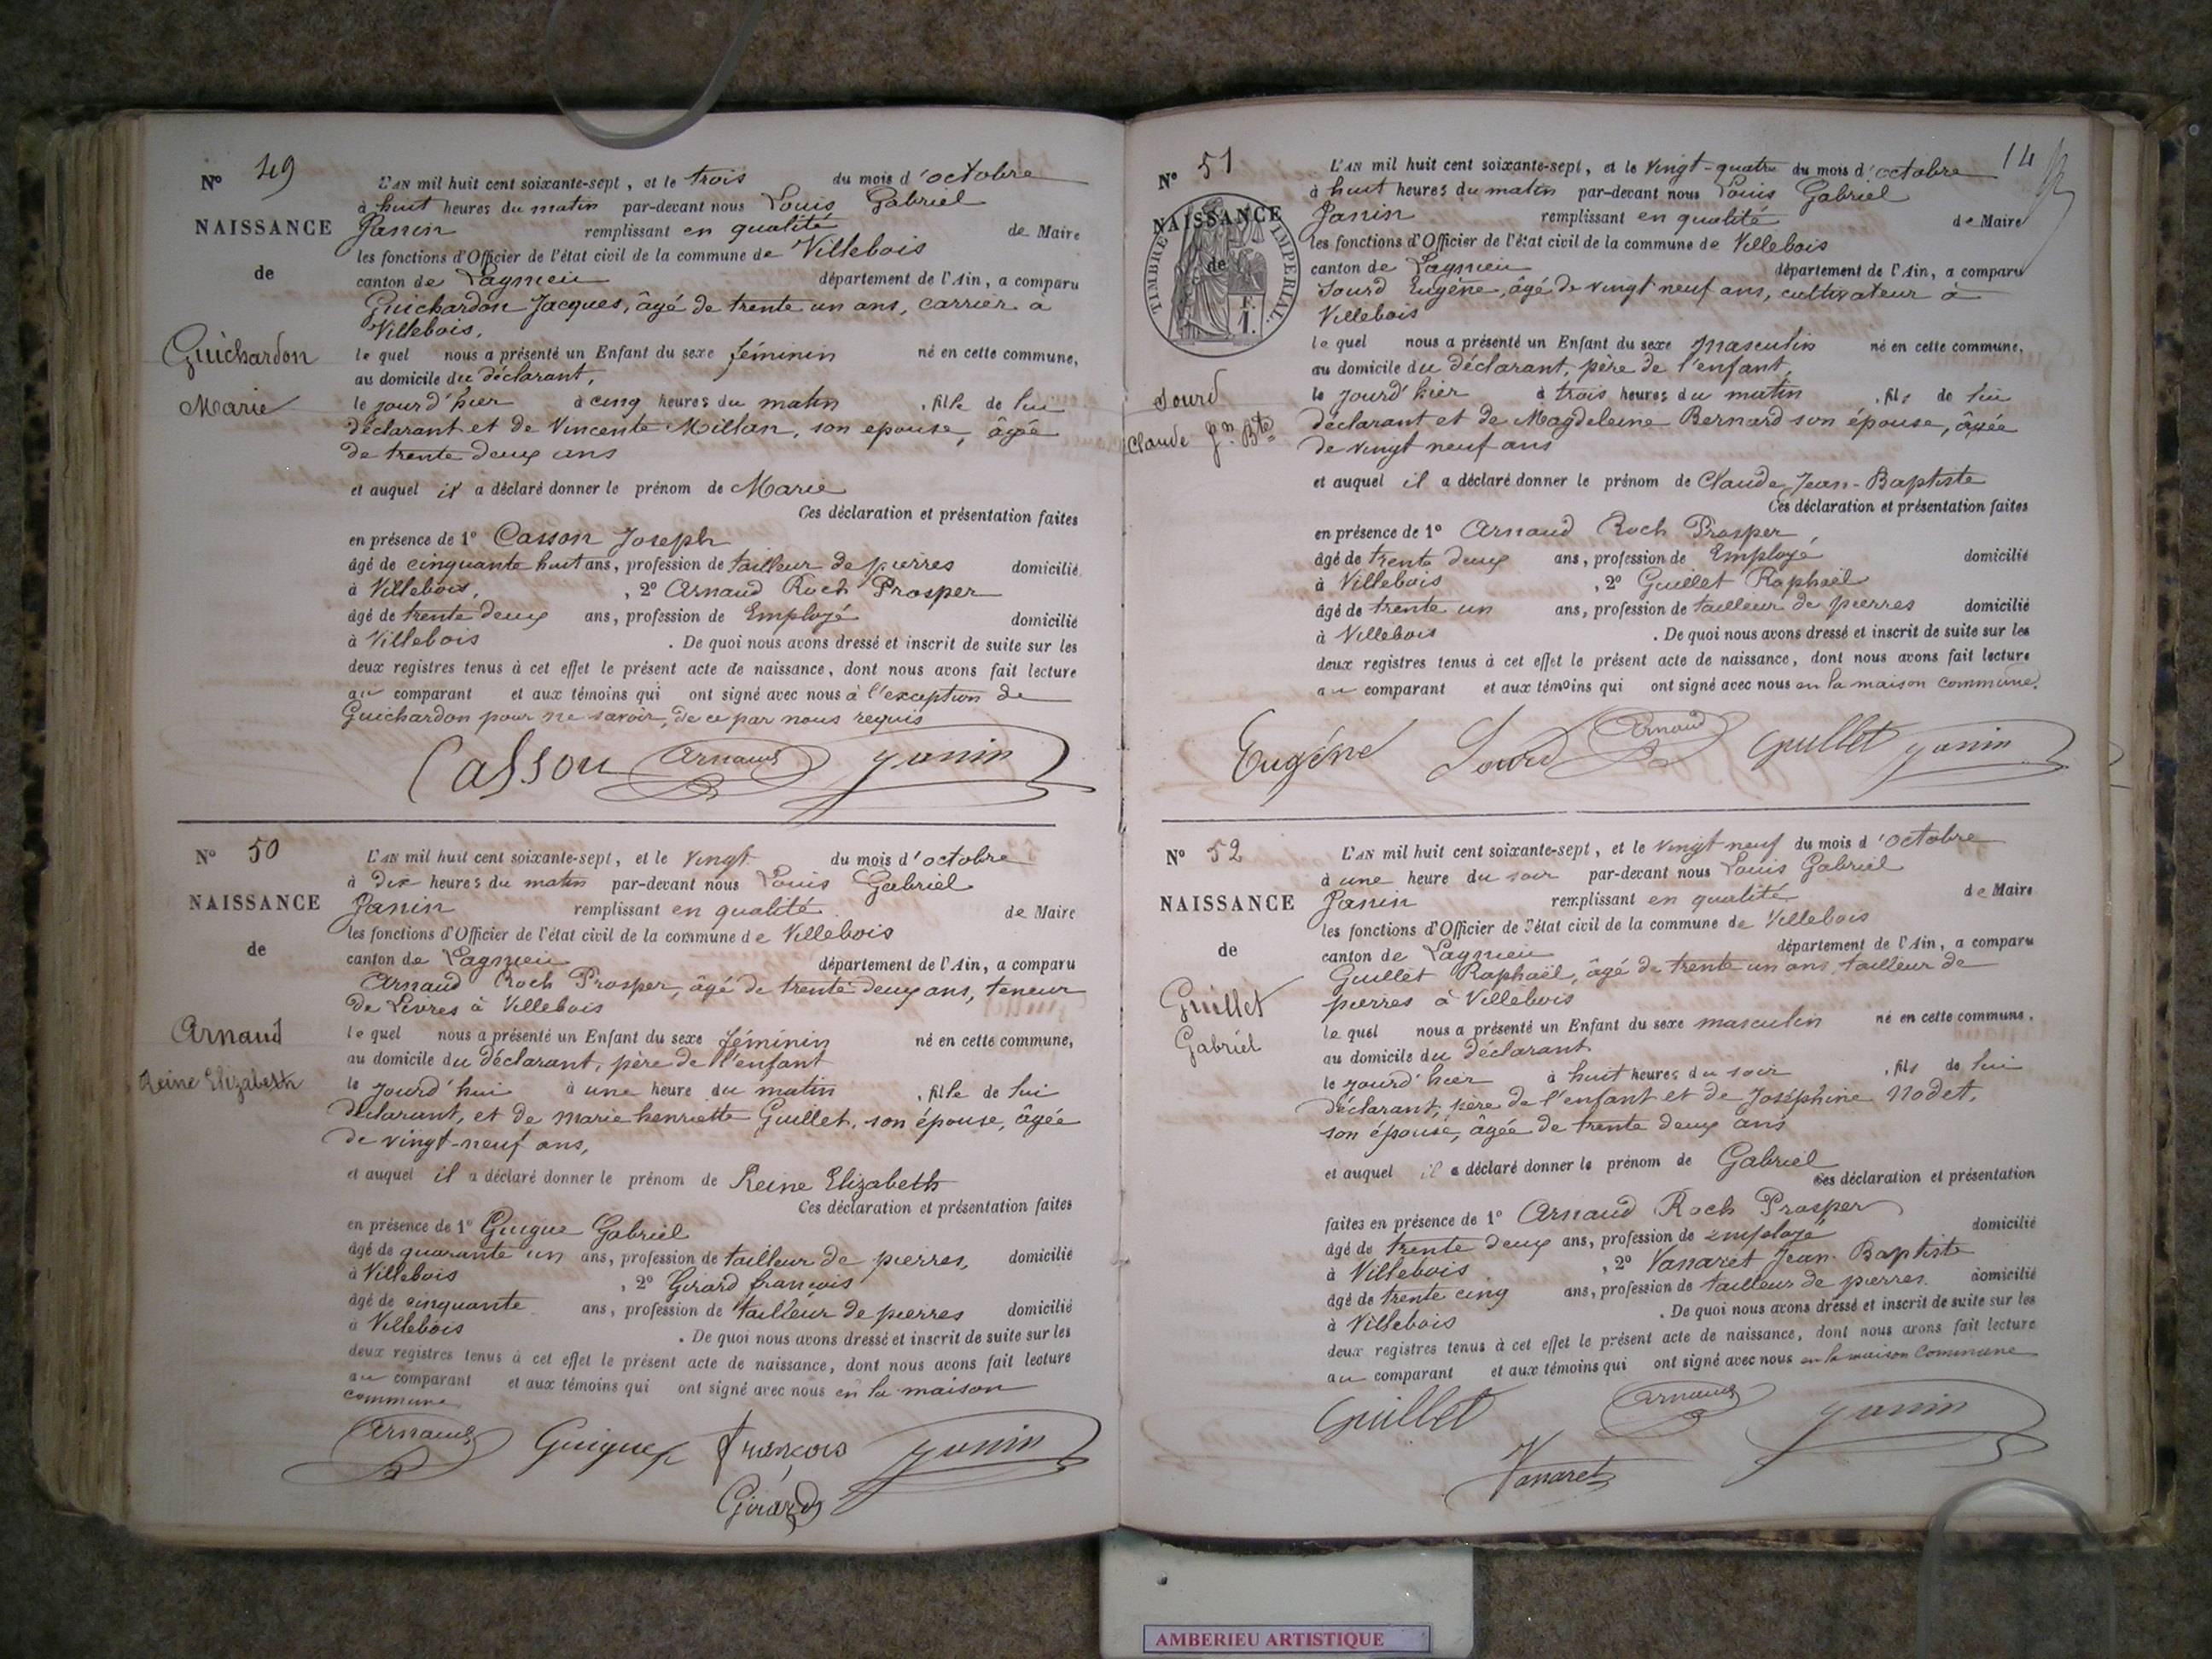 N° 49
NAISSANCE
de
Guichardon
Marie
L'AN mil huit cent soixante-sept, et le trois du mois d'octobre
à huit heures du matin par-devant nous Louis Gabriel
Janin remplissant en qualité de Maire
les fonctions d'Officier de l'état civil de la commune de Villebois
canton de Lagnieu département de l'Ain, a comparu
Guichardon Jacques, âgé de trente un ans, carrier à
Villebois,
le quel nous a présenté un Enfant du sexe féminin né en cette commune,
au domicile du déclarant,
le jourd'hier à cinq heures du matin, fille de lui
déclarant et de Vincente Millan, son epouse, âgée
de trente deux ans
et auquel il a déclaré donner le prénom de Marie
Ces déclaration et présentation faites
en présence de 1° Casson Joseph
âgé de cinquante huit ans, profession de tailleur de pierres domicilié
à Villebois, , 2° Arnaud Roch Prosper
âgé de trente deux ans, profession de Employé domicilié
à Villebois . De quoi nous avons dressé et inscrit de suite sur les
deux registres tenus à cet effet le présent acte de naissance, dont nous avons fait lecture
au comparant et aux témoins qui ont signé avec nous à l'exception de
Guichardon pour ne savoir, de ce par nous requis
Casson Arnaud Janin
N° 50
NAISSANCE
de
Arnaud
Reine Elizabeth
L'AN mil huit cent soixante-sept, et le vingt du mois d'octobre
à dix heures du matin par-devant nous Louis Gabriel
Janin remplissant en qualité de Maire
les fonctions d'Officier de l'état civil de la commune de Villebois
canton de Lagnieu département de l'Ain, a comparu
Arnaud Roch Prosper, âgé de trente deux ans, teneur
de Livres à Villebois
le quel nous a présenté un Enfant du sexe féminin né en cette commune,
au domicile du déclarant, père de l'enfant
le jourd'hui à une heure du matin, fille de lui
déclarant, et de marie henriette Guillet, son épouse, âgée
de vingt-neuf ans,
et auquel il a déclaré donner le prénom de Reine Elizabeth
Ces déclaration et présentation faites
en présence de 1° Guigue Gabriel
âgé de quarante un ans, profession de tailleur de pierres, domicilié
à Villebois , 2° Girard françois
âgé de cinquante ans, profession de tailleur de pierres domicilié
à Villebois . De quoi nous avons dressé et inscrit de suite sur les
deux registres tenus à cet effet le présent acte de naissance, dont nous avons fait lecture
au comparant et aux témoins qui ont signé avec nous en la maison
commune
Arnaud Guigue françois Janin
Girard
14
N° 51
NAISSANCE
de
TIMBRE IMPERIAL
F.
1.
Sourd
Claude Jn Bte
L'AN mil huit cent soixante-sept, et le vingt-quatre du mois d'octobre
à huit heures du matin par-devant nous Louis Gabriel
Janin remplissant en qualité de Maire
les fonctions d'Officier de l'état civil de la commune de Villebois
canton de Lagnieu département de l'Ain, a comparu
Sourd Eugène, âgé de vingt neuf ans, cultivateur à
Villebois
le quel nous a présenté un Enfant du sexe masculin né en cette commune,
au domicile du déclarant, père de l'enfant,
le jourd'hier à trois heures du matin, fils de lui
déclarant et de Magdeleine Bernard son épouse, âgée
de vingt neuf ans
et auquel il a déclaré donner le prénom de Claude, Jean-Baptiste
Ces déclaration et présentation faites
en présence de 1° Arnaud Roch Prosper
âgé de trente deux ans, profession de Employé domicilié
à Villebois , 2° Guillet Raphaël
âgé de trente un ans, profession de tailleur de pierres domicilié
à Villebois . De quoi nous avons dressé et inscrit de suite sur les
deux registres tenus à cet effet le présent acte de naissance, dont nous avons fait lecture
au comparant et aux témoins qui ont signé avec nous en la maison commune.
Eugéne Sourd Arnaud Guillet Janin
N° 52
NAISSANCE
de
Guillet
Gabriel
L'AN mil huit cent soixante-sept, et le vingt neuf du mois d'octobre
à une heure du soir par-devant nous Louis Gabriel
Janin remplissant en qualité de Maire
les fonctions d'Officier de l'état civil de la commune de Villebois
canton de Lagnieu département de l'Ain, a comparu
Guillet Raphaël, âgé de trente un ans, tailleur de
pierres à Villebois
le quel nous a présenté un Enfant du sexe masculin né en cette commune,
au domicile du déclarant
le jourd'hier à huit heures du soir, fils de lui
déclarant, père de l'enfant et de Joséphine Nodet,
son épouse, âgée de trente deux ans
et auquel il a déclaré donner le prénom de Gabriel
Ces déclaration et présentation
faites en présence de 1° Arnaud Roch Prosper
âgé de trente deux ans, profession de employé domicilié
à Villebois , 2° Vanaret Jean-Baptiste
âgé de trente cinq ans, profession de tailleur de pierres domicilié
à Villebois . De quoi nous avons dressé et inscrit de suite sur les
deux registres tenus à cet effet le présent acte de naissance, dont nous avons fait lecture
au comparant et aux témoins qui ont signé avec nous en la maison commune
Guillet Arnaud Janin
Vanaret
AMBERIEU ARTISTIQUE